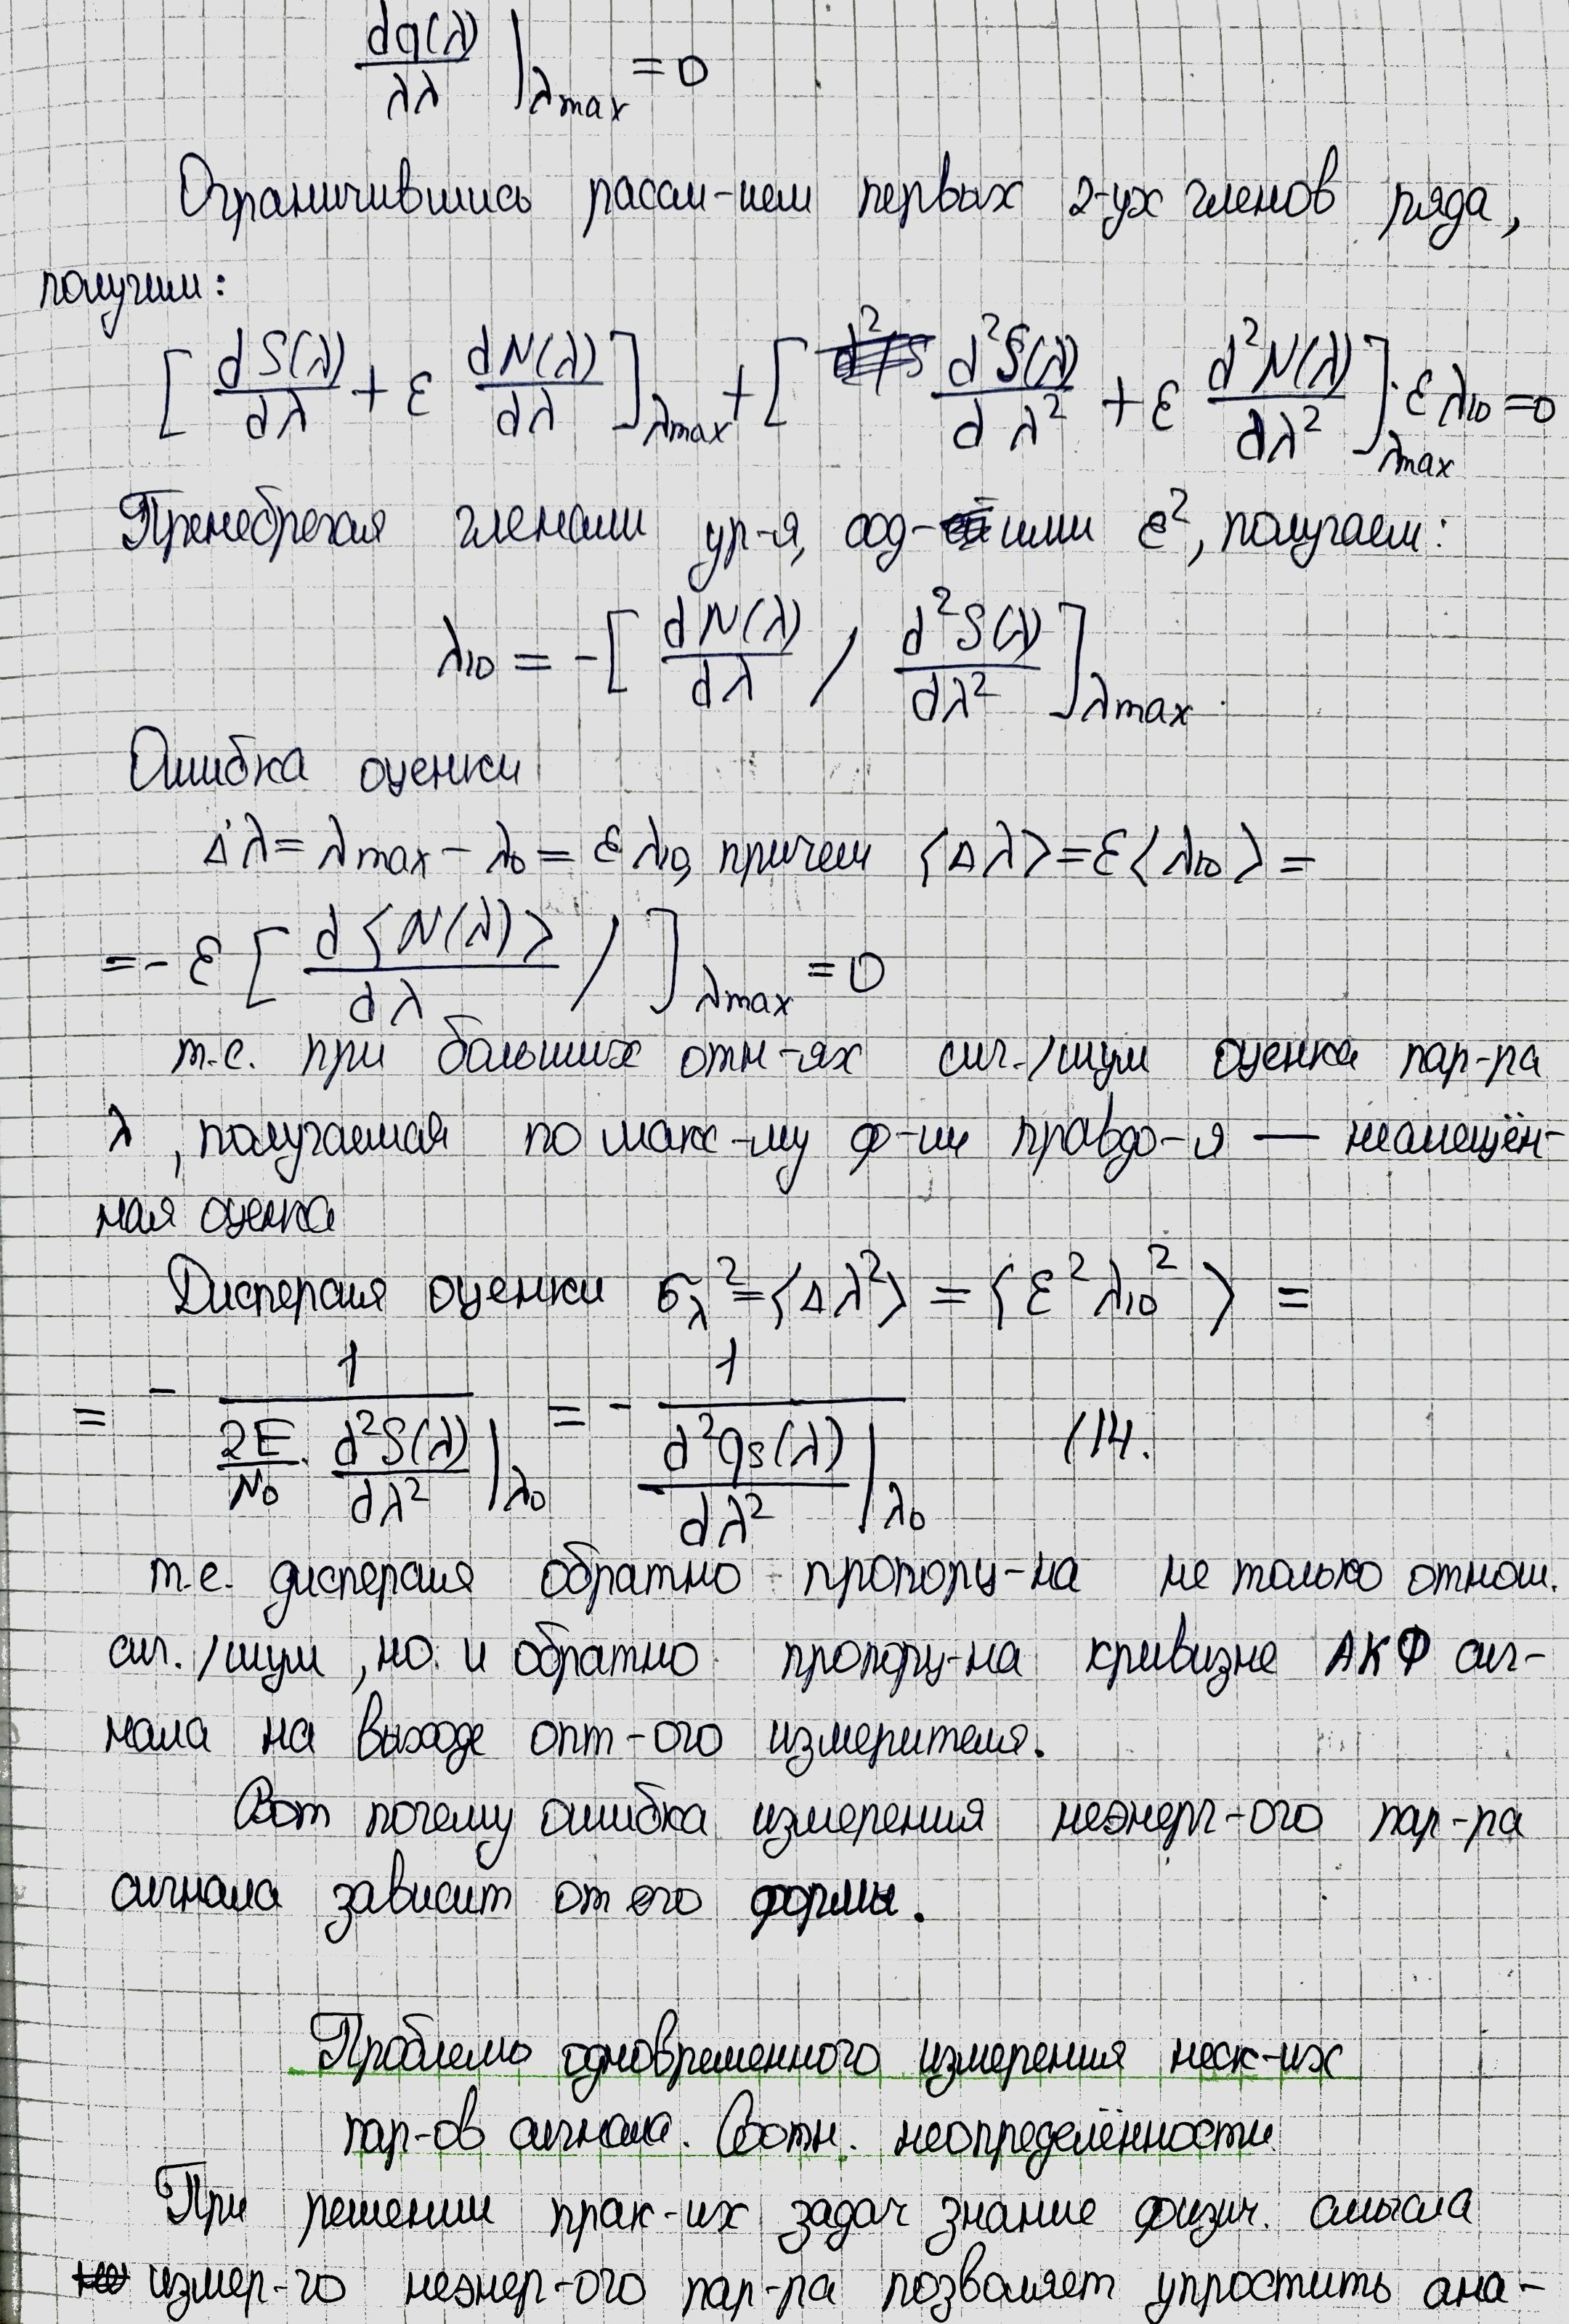 dq(λ)/λλ |λmax = 0
Ограничившись рассм-ием первых 2-ух членов ряда,
получим:
[dS(λ)/dλ + ε dN(λ)/dλ]λmax + [d²S(λ)/dλ² + ε d²N(λ)/dλ²]λmax · ελ10 = 0
Пренебрегая членами ур-я, сод-ими ε², получаем:
λ10 = -[dN(λ)/dλ / d²S(λ)/dλ²]λmax.
Ошибка оценки
Δλ = λmax - λ0 = ελ10, причем ⟨Δλ⟩ = ε⟨λ10⟩ =
= - ε [d⟨N(λ)⟩/dλ / ]λmax = 0
т.е. при больших отн-ях сиг./шум оценка пар-ра
λ, получаемая по макс-му ф-ии правдо-я — несмещён-
ная оценка
Дисперсия оценки σλ² = ⟨Δλ²⟩ = ⟨ε²λ10²⟩ =
= - 1/(2E/N0 · d²S(λ)/dλ² |λ0) = - 1/(d²qs(λ)/dλ² |λ0) (14.
т.е. дисперсия обратно пропорц-на не только отнош.
сиг./шум, но и обратно пропорц-на кривизне АКФ сиг-
нала на выходе опт-ого измерителя.
Вот почему ошибка измерения неэнерг-ого пар-ра
сигнала зависит от его формы.
Проблемы одновременного измерения неск-их
пар-ов сигнала. Соотн. неопределённости
При решении прак-их задач знание физич. смысла
измер-го неэнер-ого пар-ра позволяет упростить ана-